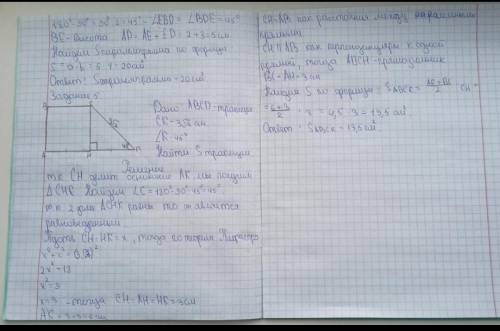 180°-90°= 90°:2=45°- ∠EBD = ∠BDE=45°
BE-высота AD. AE+ED=2+3=5см
Найдем S параллелограмма по формуле
Ответ: S параллелограмма-20см²
Задание 5.
Дано: ABCD-трапеция
CK-3√2 см.
∠K-45°
Найти S трапеции
Решение
т.к CH делит основание AK мы получим
△CHK. Найдем ∠C=180°-90°-45°=45°.
т.к 2 угла △CHK равны то
равнобедренным
Пусть CH=HK=x, тогда по теореме Пифагора
x²+x²=(3√2)²
2x²=18
x²=9
x=3 -тогда CH=AH=HK=3см
AK=3+3=6см
CH=AB как расстояния между параллельными
прямыми
CH∥AB как перпендикуляры к одной
прямой, тогда ABCH-прямоугольник
BC=AH=3см
Найдем S по формуле: S ABCK= (AK+BC)/2 · CH=
=(6+3)/2 · 3=4,5·3=13,5см².
Ответ: S ABCK=13,5см²